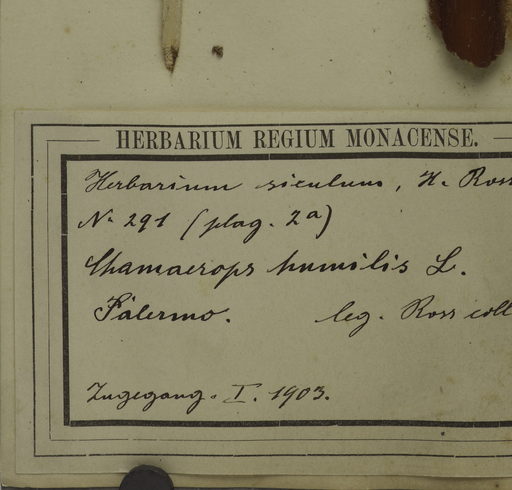 HERBARIUM REGIUM MONACENSE.
Herbarium siculum, H. Ross
No. 291 (plag. 2a)
Chamaerops humilis L.
Palermo. leg. Ross coll
Zugegang. I. 1903.